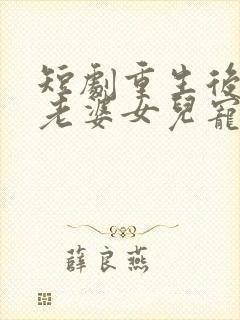 短劇重生後
老婆女兒寵
薛良燕